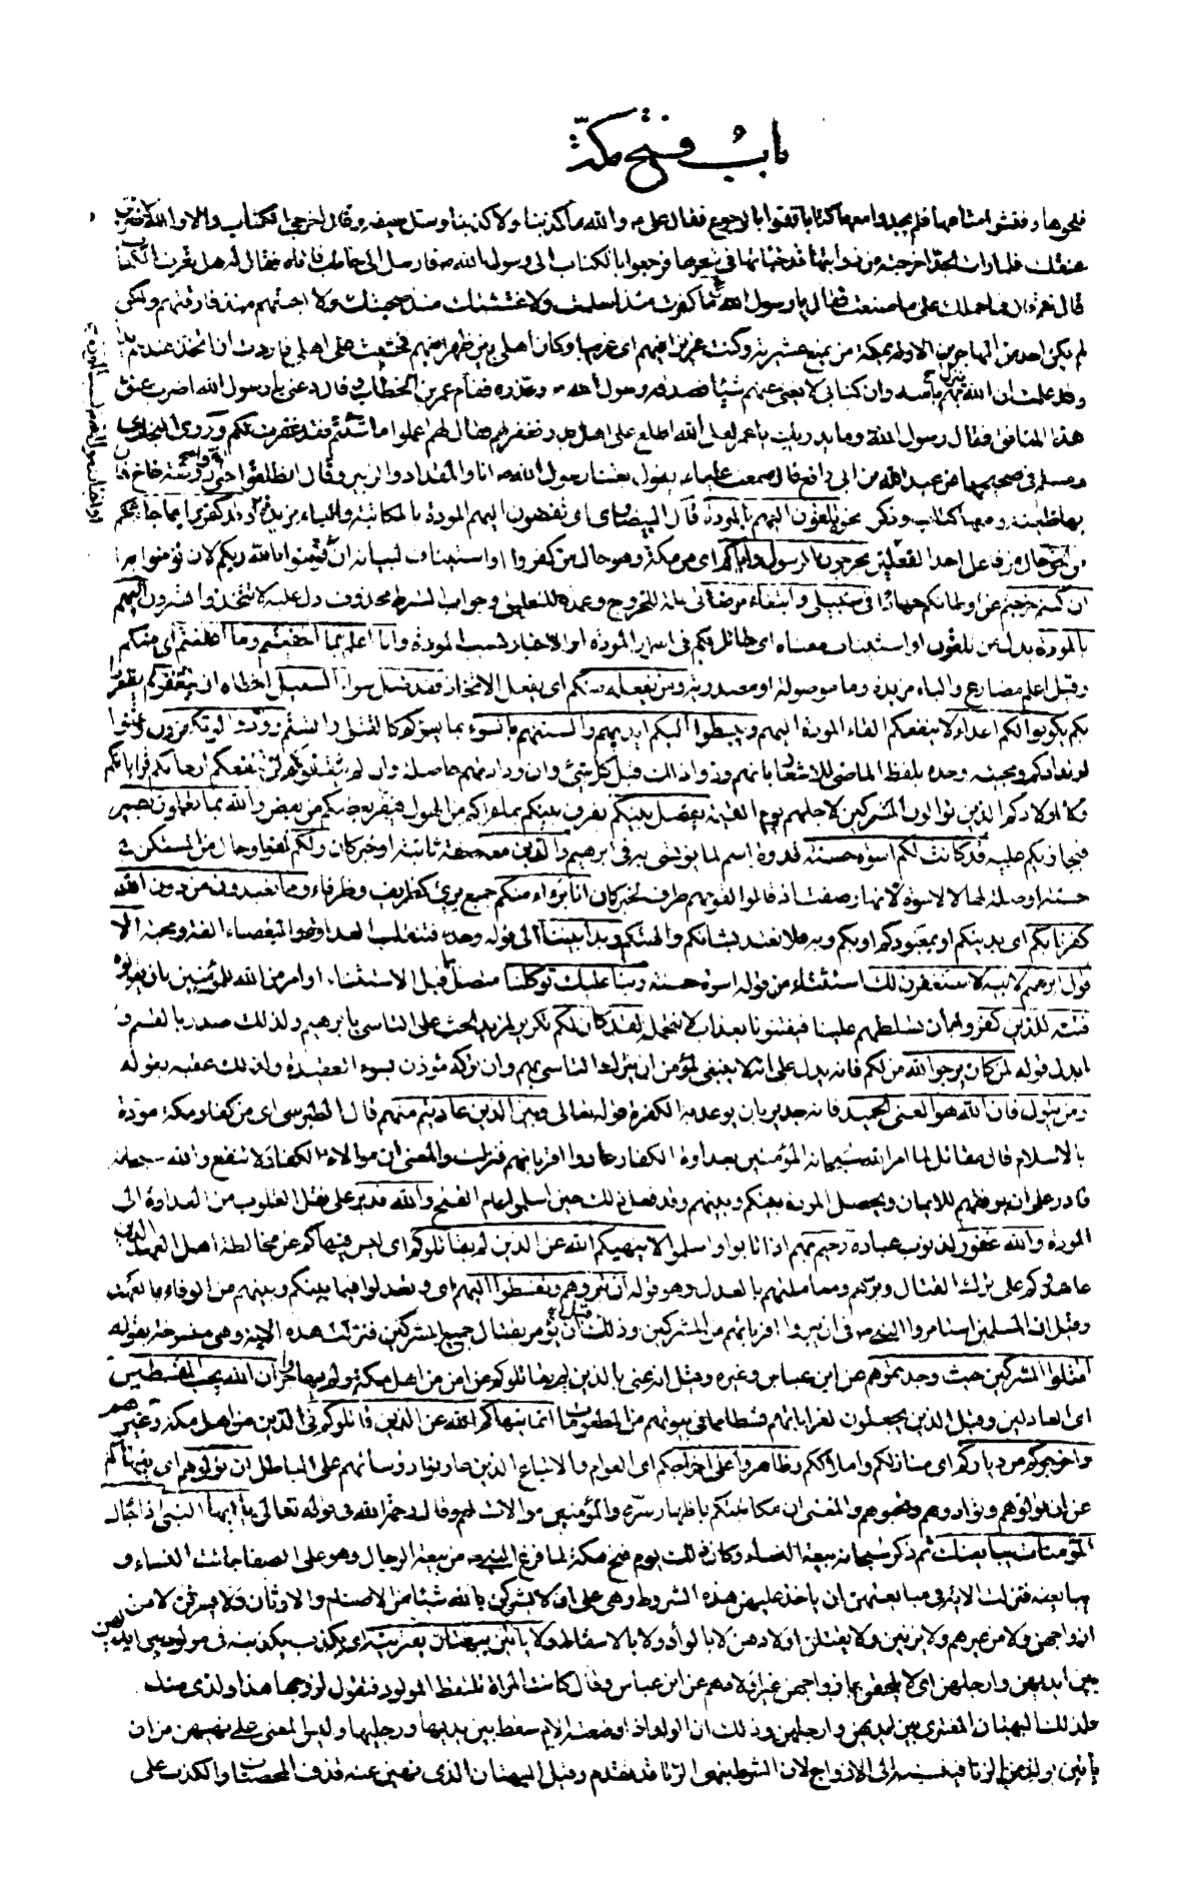 باب فتح مكة
فلحقوها وفتشوا متاعها فلم يجدوا معها كتابا فهموا بالرجوع فقال علي والله ما كذبنا ولا كذبنا وسل سيفه وقال اخرجي الكتاب والا والله لاضربن
عنقك فلما رات الجد اخرجته من ذوابتها قد خباتها في شعرها فرجعوا بالكتاب الى رسول الله ص فارسل الى حاطب فاتاه فقال له هل تعرف الكتاب
قال نعم قال فما حملك على ما صنعت فقال يا رسول الله ما كفرت منذ اسلمت ولا غششتك منذ صحبتك ولا اجبتهم منذ فارقتهم ولكن
لم يكن احد من المهاجرين الا وله بمكة من يمنع عشيرته وكنت عزيزا فيهم اى غريبا وكان اهلي بين ظهرانيهم فخشيت على اهلي فاردت ان اتخذ عندهم يدا
وقد علمت ان الله ينزل بهم باسه وان كتابي لا يغني عنهم شيئا فصدقه رسول الله ص وعذره فقام عمر بن الخطاب وقال دعني يا رسول الله اضرب عنق
هذا المنافق فقال رسول الله وما يدريك يا عمر لعل الله اطلع على اهل بدر فغفر لهم فقال لهم اعملوا ما شئتم فقد غفرت لكم وروى البخاري
ومسلم في صحيحهما عن عبيد الله بن ابي رافع قال سمعت عليا ع يقول بعثنا رسول الله ص انا والمقداد والزبير وقال انطلقوا حتى تاتوا روضة خاخ فان
بها ظعينة ومعها كتاب وذكر نحوه تلقون اليهم بالمودة قال البيضاوي اى تفضون اليهم المودة بالمكاتبة والباء مزيدة وقد كفروا بما جاءكم
من الحق حال من فاعل احد الفعلين يخرجون الرسول واياكم اى من مكة وهو حال من كفروا او استيناف لبيانه ان تؤمنوا بالله ربكم لان تؤمنوا به
ان كنتم خرجتم عن اوطانكم جهادا في سبيلي وابتغاء مرضاتي علة للخروج وعمدة للتعليق وجواب الشرط محذوف دل عليه لا تتخذوا تسرون اليهم
بالمودة بدل من تلقون او استيناف معناه اى طائل لكم في اسرار المودة او الاخبار بسبب المودة وانا اعلم بما اخفيتم وما اعلنتم اى منكم
وقيل اعلم مضارع والباء مزيدة وما موصولة او مصدرية ومن يفعله منكم اى يفعل الاتخاذ فقد ضل سواء السبيل اخطاه ان يثقفوكم يظفروا
بكم يكونوا لكم اعداء لا ينفعكم القاء المودة اليهم ويبسطوا اليكم ايديهم والسنتهم بالسوء بما يسوؤكم كالقتل والشتم وودوا لو تكفرون وتمنوا
ارتدادكم ومجيئه وحده بلفظ الماضي للاشعار بانهم ودوا ذلك قبل كل شيء وان ودادتهم حاصلة وان لم يثقفوكم لن تنفعكم ارحامكم قراباتكم
ولا اولادكم الذين توالون المشركين لاجلهم يوم القيمة يفصل بينكم يفرق بينكم بما عراكم من الهول فيفر بعضكم من بعض والله بما تعملون بصير
فيجازيكم عليه قد كانت لكم اسوة حسنة قدوة اسم لما يؤتسى به في ابرهيم والذين معه صفة ثانية او خبر كان ولكم لغو او حال من المستكن في
حسنة او صلة لها لا لاسوة لانها وصفت اذ قالوا لقومهم ظرف لخبر كان انا برءاء منكم جمع برئ كظريف وظرفاء ومما تعبدون من دون الله
كفرنا بكم اى بدينكم او بمعبودكم او بكم وبه فلا نعتد بشانكم والهتكم وبدا بيننا الى قوله وحده فتنقلب العداوة والبغضاء الفة ومحبة الا
قول ابرهيم لابيه لاستغفرن لك استثناء من قوله اسوة حسنة ربنا عليك توكلنا متصل بما قبل الاستثناء او امر من الله للمؤمنين بان يقولوه
فتنة للذين كفروا بان تسلطهم علينا فيفتنونا بعذاب لا نتحمله لقد كان لكم تكرير لمزيد الحث على التاسي بابرهيم ولذلك صدر بالقسم و
ابدل قوله لمن كان يرجوا الله من لكم فانه يدل على انه لا ينبغي لمؤمن ان يترك التاسي بهم وان تركه مؤذن بسوء العقيدة ولذلك عقبه بقوله
ومن يتول فان الله هو الغني الحميد فانه جدير بان يوعد به الكفرة قوله تعالى وبين الذين عاديتم منهم قال الطبرسي اى من كفار مكة مودة
بالاسلام قال مقاتل لما امر الله سبحانه المؤمنين بعداوة الكفار عادوا اقرباءهم فنزلت والمعنى ان موالاة الكفار لا تنفع والله سبحانه
قادر على ان يوفقهم للايمان ويحصل المودة بينكم وبينهم وقد فعل ذلك حين اسلموا عام الفتح والله قدير على نقل القلوب من العداوة الى
المودة والله غفور لذنوب عباده رحيم بهم اذا تابوا واسلموا لا ينهيكم الله عن الذين لم يقاتلوكم اى ليس ينهاكم عن مخالطة اهل العهد الذين
عاهدوكم على ترك القتال وبرهم ومعاملتهم بالعدل وهو قوله ان تبروهم وتقسطوا اليهم اى وتعدلوا فيما بينكم وبينهم من الوفاء بالعهد
وقيل ان المسلمين استامروا النبي ص في ان يبروا اقرباءهم من المشركين وذلك قبل ان يؤمر بقتال جميع المشركين فنزلت هذه الاية وهي منسوخة بقوله
اقتلوا المشركين حيث وجدتموهم عن ابن عباس وغيره وقيل انه عنى بالذين لم يقاتلوكم من امن من اهل مكة ولم يهاجر ان الله يحب المقسطين
اى العادلين وقيل الذين يجعلون لقراباتهم قسطا مما في بيوتهم من المطعومات انما ينهاكم الله عن الذين قاتلوكم في الدين من اهل مكة وغيرهم
واخرجوكم من دياركم اى منازلكم واملاككم وظاهروا على اخراجكم اى العوام والاتباع الذين عاونوا رؤساءهم على الباطل ان تولوهم اى ينهاكم
عن ان تولوهم وتوادوهم وتحبوهم والمعنى ان مكاتبتكم باظهار سر المؤمنين موالاة لهم وقال رحمه الله في قوله تعالى يا ايها النبي اذا جاءك
المؤمنات يبايعنك ثم ذكر سبحانه بيعة النساء وكان ذلك يوم فتح مكة لما فرغ النبي ص من بيعة الرجال وهو على الصفا جائت النساء و
يبايعنه فنزلت الاية في مبايعتهن ان ياخذ عليهن هذه الشروط وهي على ان لا يشركن بالله شيئا من الاصنام والاوثان ولا يسرقن لا من
ازواجهن ولا من غيرهم ولا يزنين ولا يقتلن اولادهن لا بالوأد ولا بالاسقاط ولا ياتين ببهتان يفترينه اى بكذب يكذبنه في مولود يوجد
بين ايديهن وارجلهن اى لا يلحقن بازواجهن غير اولادهم عن ابن عباس وقال كانت المراة تلتقط المولود فتقول لزوجها هذا ولدي منك
فذلك البهتان المفترى بين ايديهن وارجلهن وذلك ان الولد اذا وضعته الام سقط بين يديها ورجليها وليس المعنى على نهيهن من ان
ياتين بولد من الزنا فينسبنه الى الازواج لان الشرط بنهي الزنا قد تقدم وقيل البهتان الذي نهين عنه قذف المحصنات والكذب على